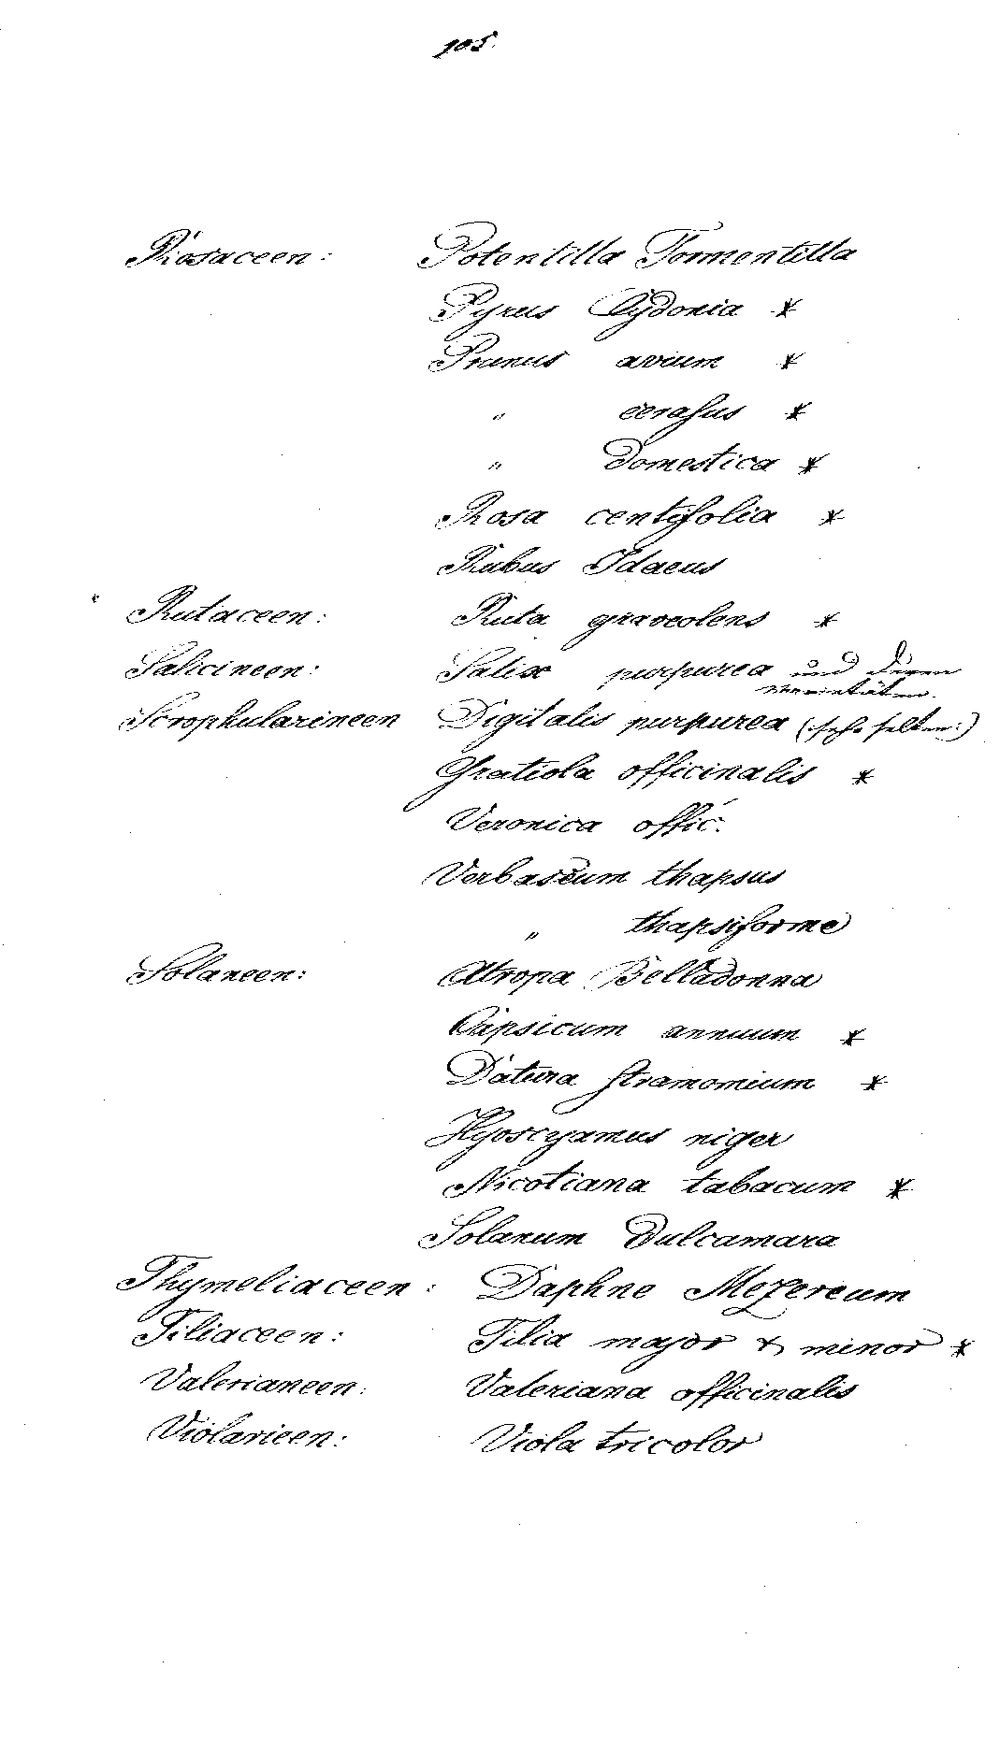 105.
Rosaceen: Potentilla Tormentilla
Pyrus Cydonia *
Prunus avium *
" cerasus *
" domestica *
Rosa centifolia *
Rubus Idaeus
Rutaceen: Ruta graveolens *
Salicineen: Salix purpurea und deren
Varietäten.
Scrophularineen Digitalis purpurea (: sehr selten :)
Gratiola officinalis *
Veronica offic.
Verbascum thapsus
" thapsiforme
Solaneen: Atropa Belladonna
Capsicum annuum *
Datura stramomium *
Hyoscyamus niger
Nicotiana tabacum *
Solanum Dulcamara
Thymeliaceen: Daphne Mezereum
Tiliaceen: Tilia major & minor *
Valerianeen: Valeriana officinalis
Violarieen: Viola tricolor